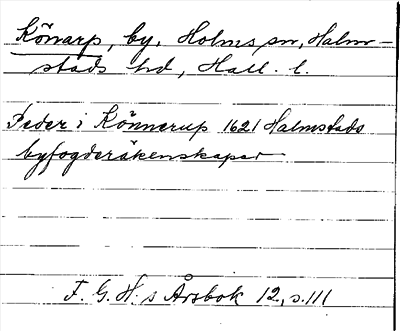 Könarp, by. Holms sn, Halm-
stads hd, Hall. l.
Peder i Könnerup 1621 Halmstads
byfogderäkenskaper
F. G. H:s Årsbok 12, s. 111